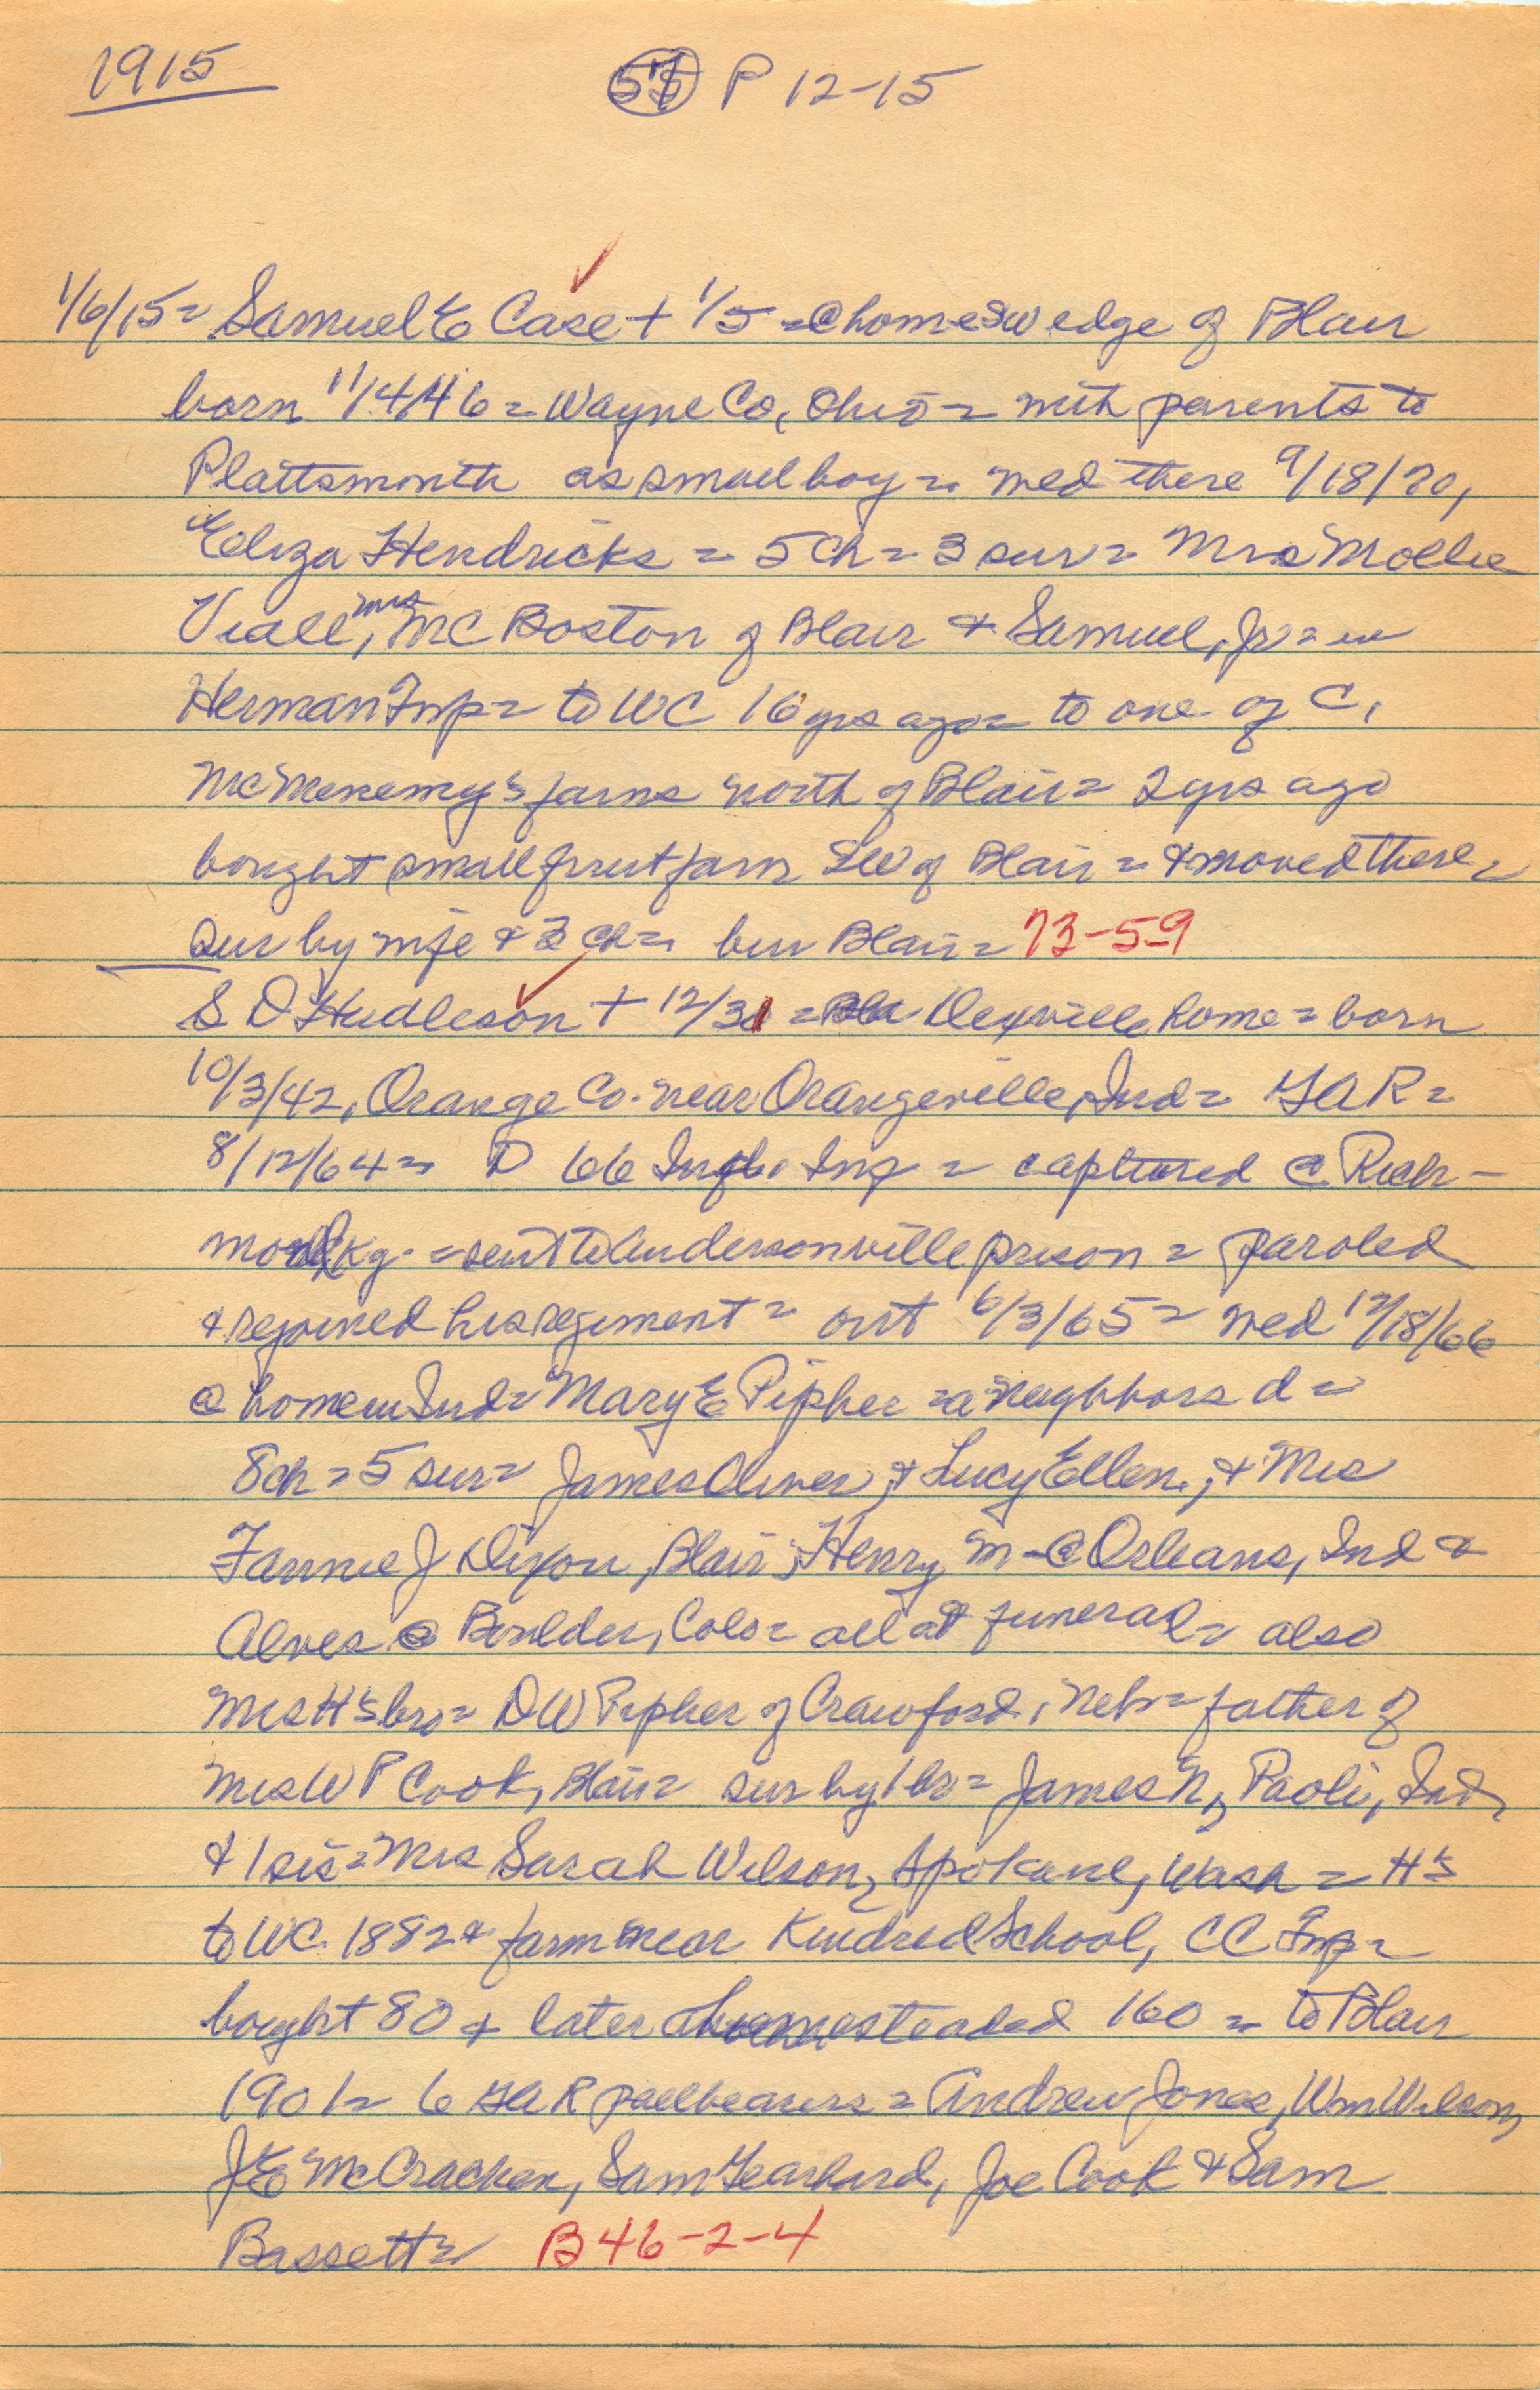 1915
P 12-15
1/6/15= Samuel E Case + 1/5 =@ home SW edge of Blair
born 11/4/46= Wayne Co, Ohio= with parents to
Plattsmouth as small boy= wed there 9/18/70,
Eliza Hendricks = 5 ch = 3 sur = Mrs Mollie
Viall, Mrs MC Boston of Blair & Samuel, Jr = in
Herman Twp= to WC 16 yrs ago= to one of C,
McMenemy's farms north of Blair= 2 yrs ago
bought small fruit farm SW of Blair = & moved there=
sur by wife & 3 ch= bur Blair= 73-59
S D Hudleson + 12/31 = Dexville home = born
10/3/42, Orange Co. near Orangeville, Ind= GAR=
8/12/64= D 66 Inf = captured @ Rich-
mond Ky. = sent to Andersonville prison = paroled
& rejoined his regiment= out 6/3/65= wed 12/18/66
@ home in Ind= Mary E Pipher =a neighbors d=
8 ch = 5 sur= James Oliver, & Lucy Ellen, & Mrs
Fannie J Dixon, Blair; Henry M-@ Orleans, Ind &
Alves @ Boulder, Colo= all at funeral= also
Mrs H's bro= DW Pipher of Crawford, Neb= father of
Mrs W P Cook, Blair= sur by 1 br= James N, Paoli, Ind,
& 1 sis= Mrs Sarah Wilson, Spokane, Wash = H's
to WC 1882 & farm near Kindred School, CC Twp=
bought 80 & later homesteaded 160 = to Blair
1901= 6 GAR pallbearers = Andrew Jones, Wm Wilson,
J E McCracken, Sam Gearhard, Joe Cook & Sam
Bassett= B 46-2-4